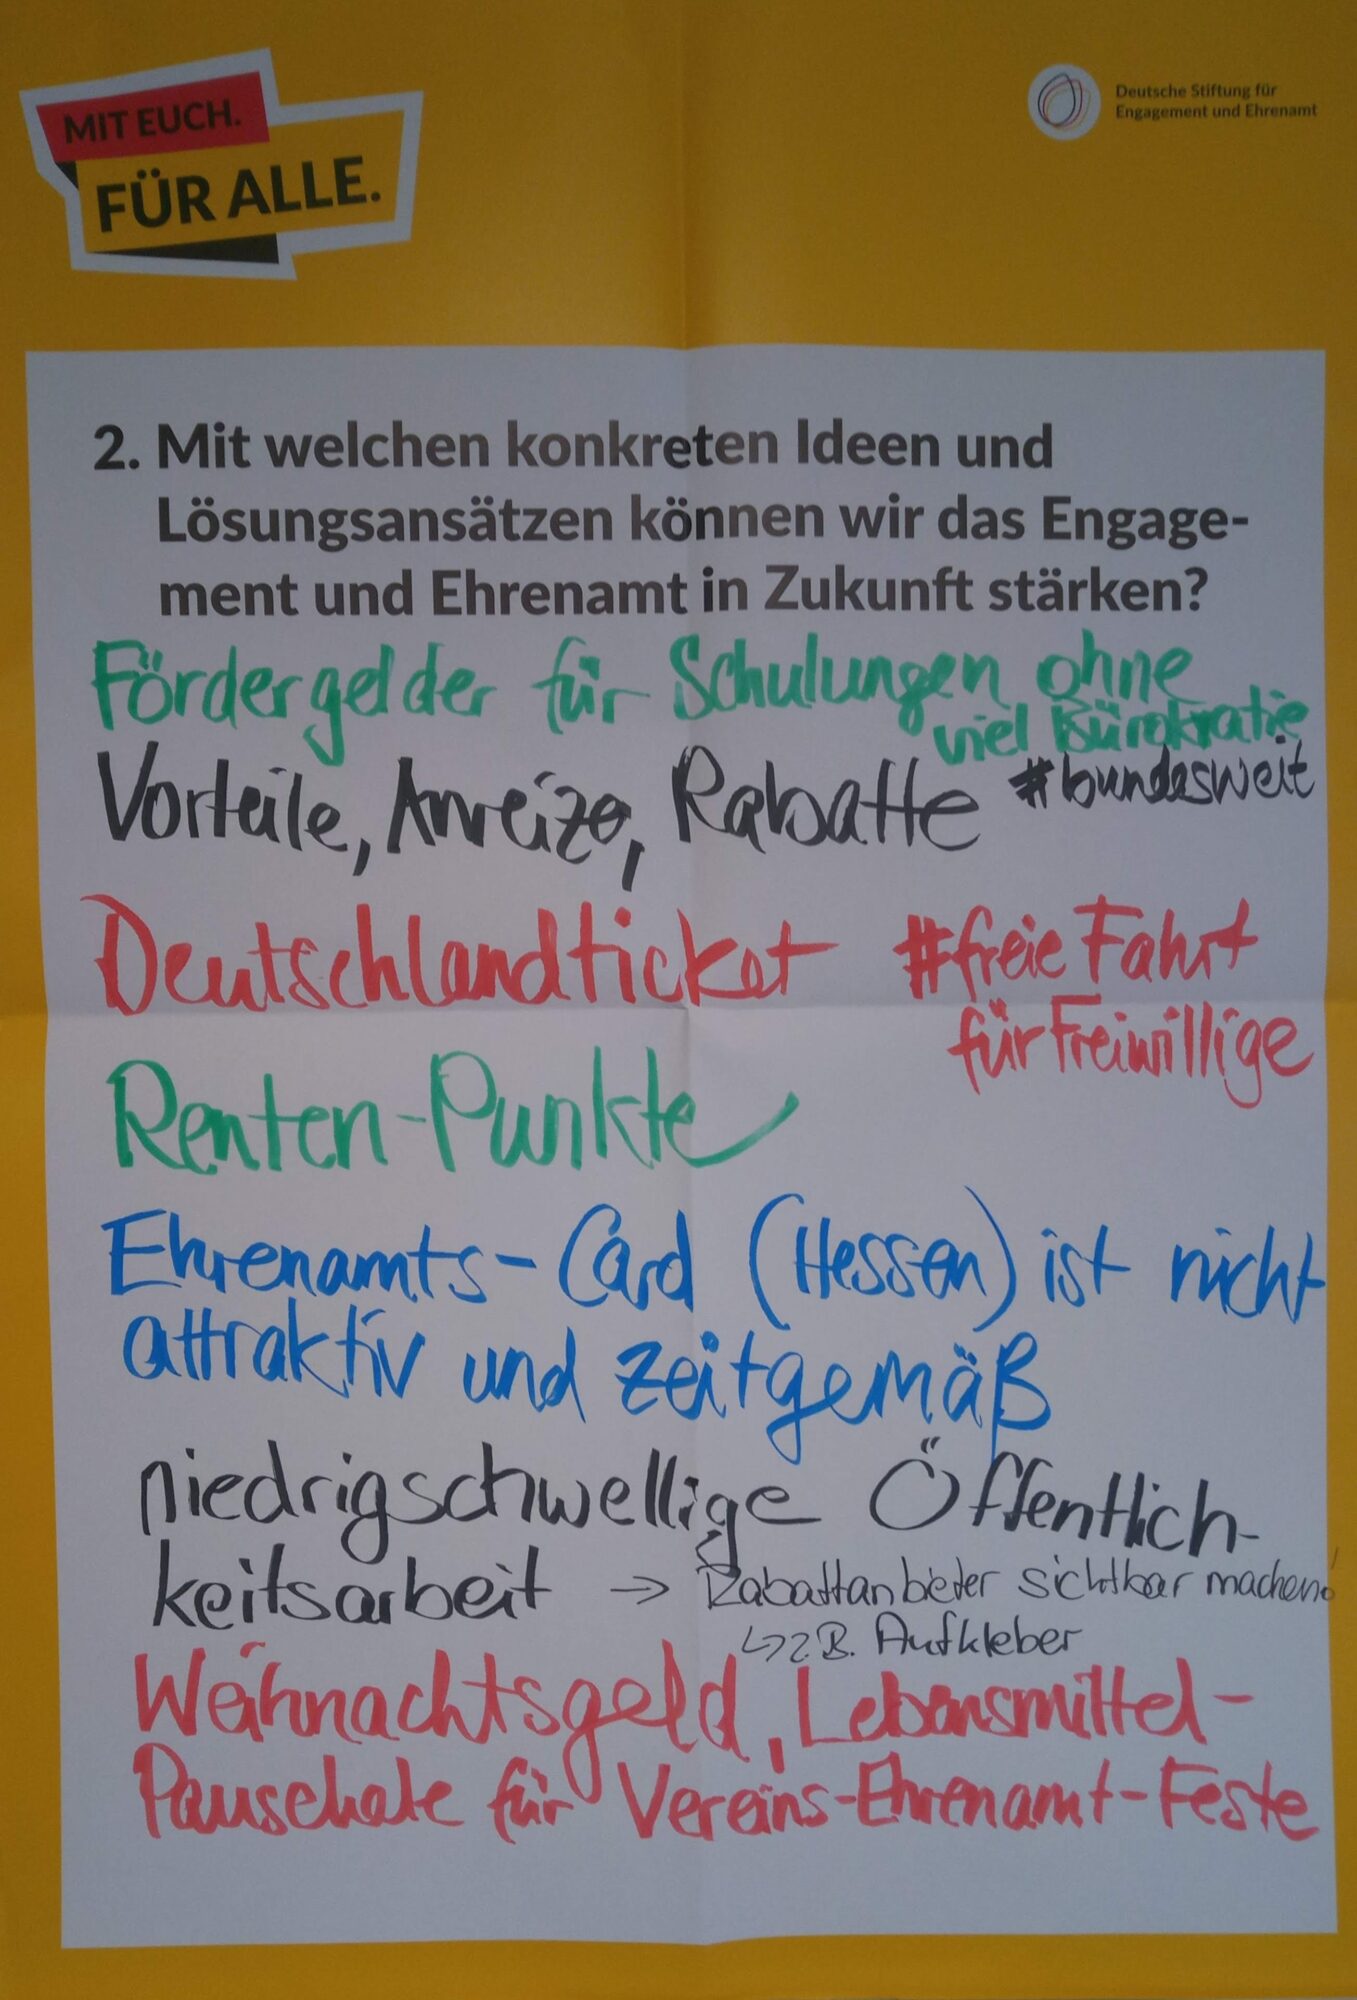 MIT EUCH.
FÜR ALLE.
Deutsche Stiftung für
Engagement und Ehrenamt
2. Mit welchen konkreten Ideen und
Lösungsansätzen können wir das Engage-
ment und Ehrenamt in Zukunft stärken?
Fördergelder für Schulungen ohne
viel Bürokratie
Vorteile, Anreize, Rabatte #bundesweit
Deutschlandticket #freie Fahrt
für Freiwillige
Renten-Punkte
Ehrenamts-Card (Hessen) ist nicht
attraktiv und zeitgemäß
niedrigschwellige Öffentlich-
keitsarbeit → Rabattanbieter sichtbar machen!
↳ z.B. Aufkleber
Weihnachtsgeld, Lebensmittel-
Pauschale für Vereins-Ehrenamt-Feste